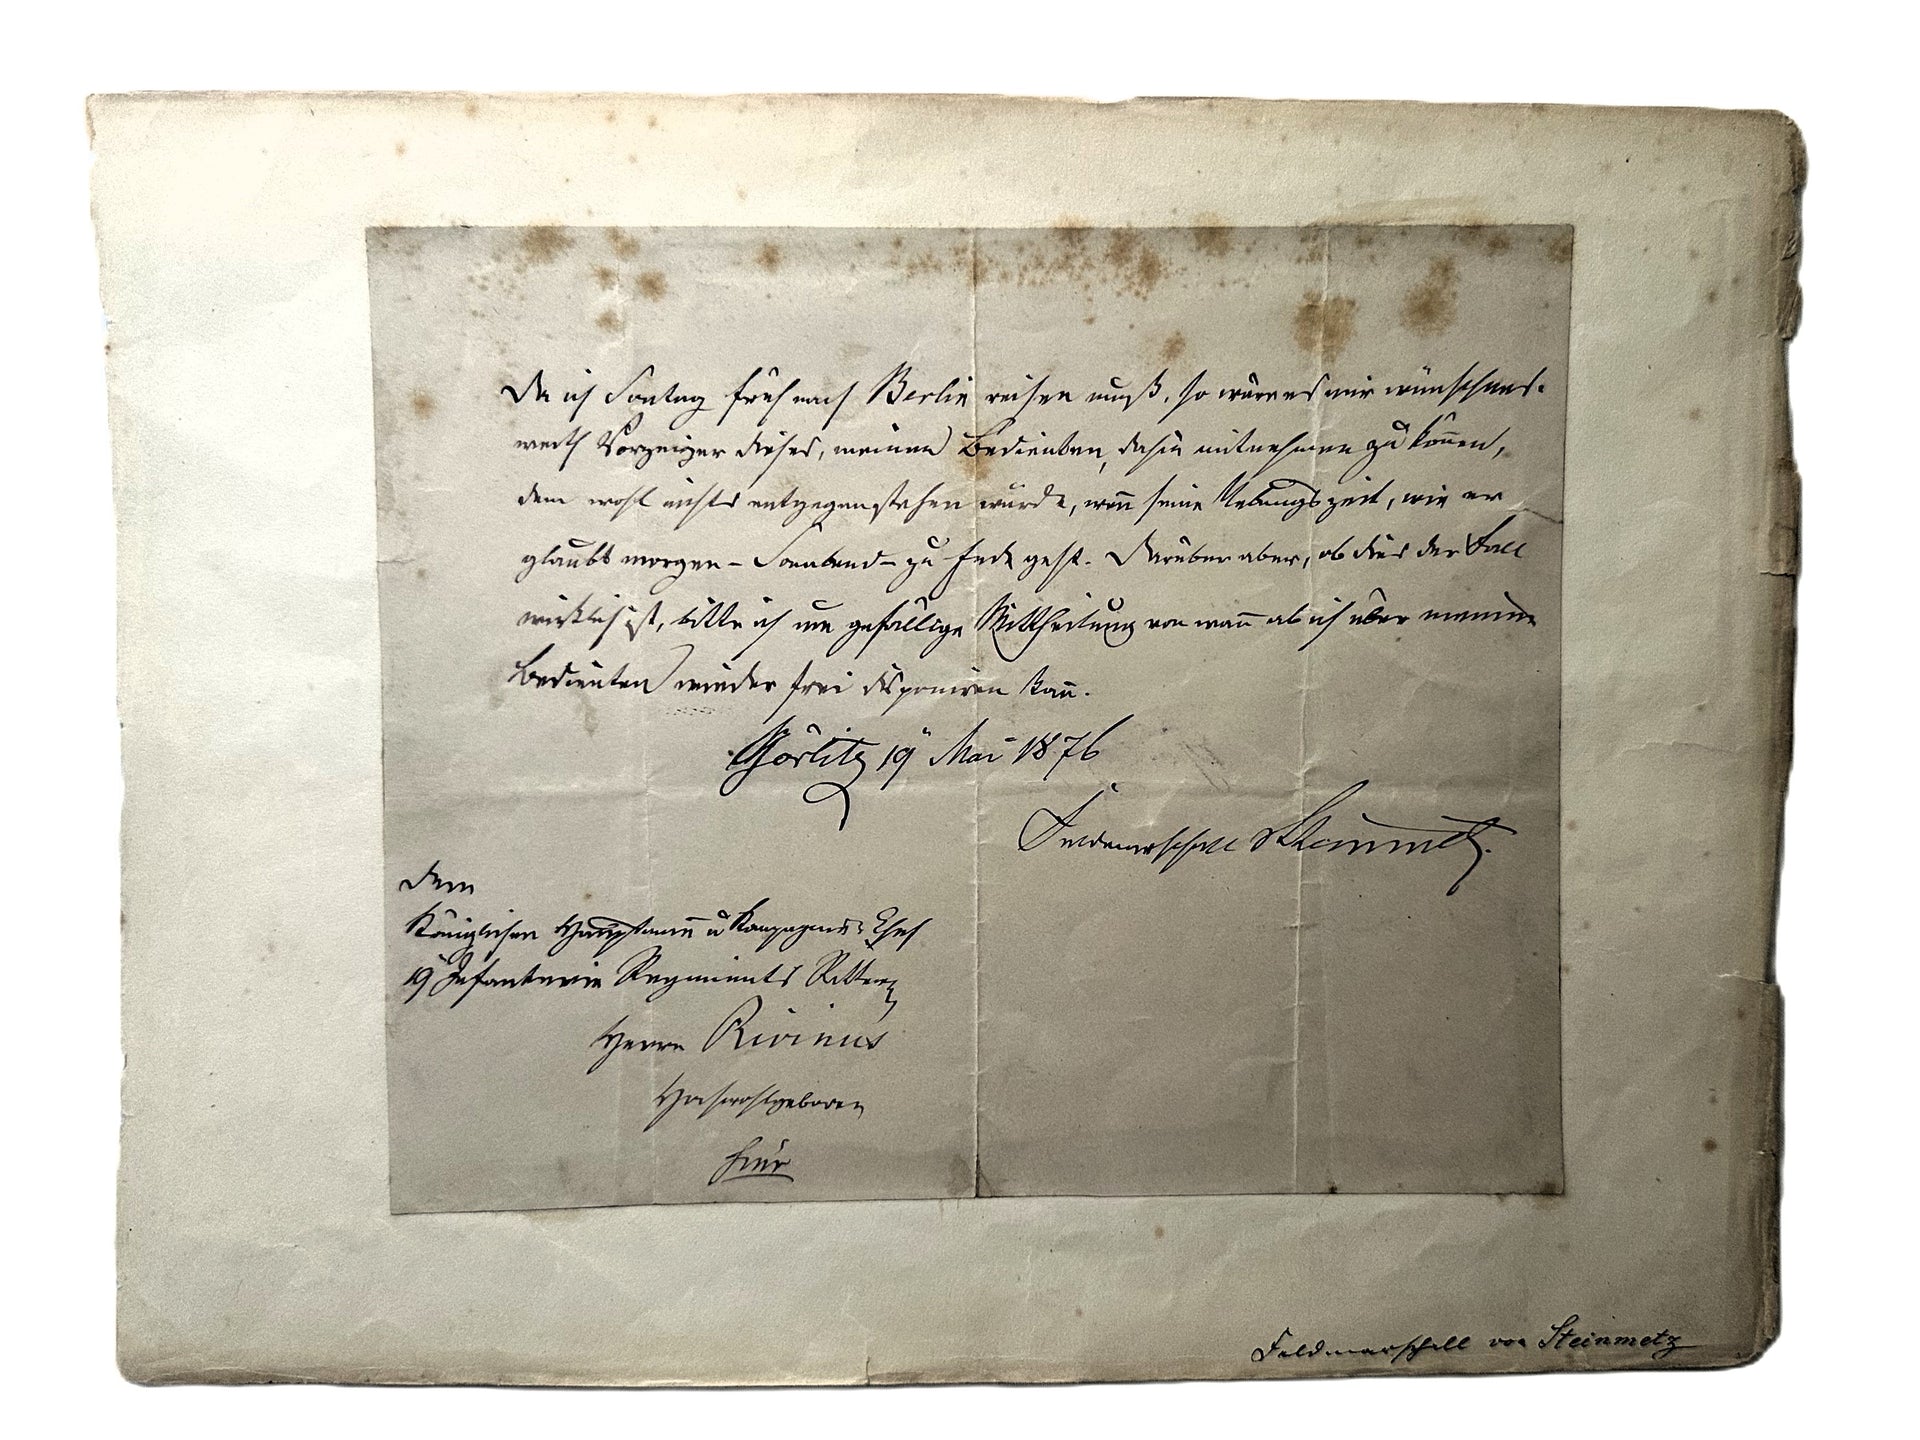 Da ich Sontag früh nach Berlin reisen muß, so wäre es mir wünschens-
werth Vorzeiger dieses, meinen Bedienten, dahin mitnehmen zu könen,
dem wohl nichts entgegenstehen würde, wen̄ seine Uebungszeit, wie er
glaubt morgen – Sonabend – zu Ende geht. Darüber aber, ob dies der Fall
wirklich ist, bitte ich um gefällige Mittheilung von wan̄ ab ich über meinen
Bedienten wieder frei disponiren kan̄.
Görlitz 19 Mai 1876
Feldmarschall Steinmetz.
Dem
Königlichen Hauptman̄ u Kompagnie-Chef
19 Infanterie Regiments Ritter
Herrn Rivinus
Hochwohlgeboren
hier
Feldmarschall von Steinmetz